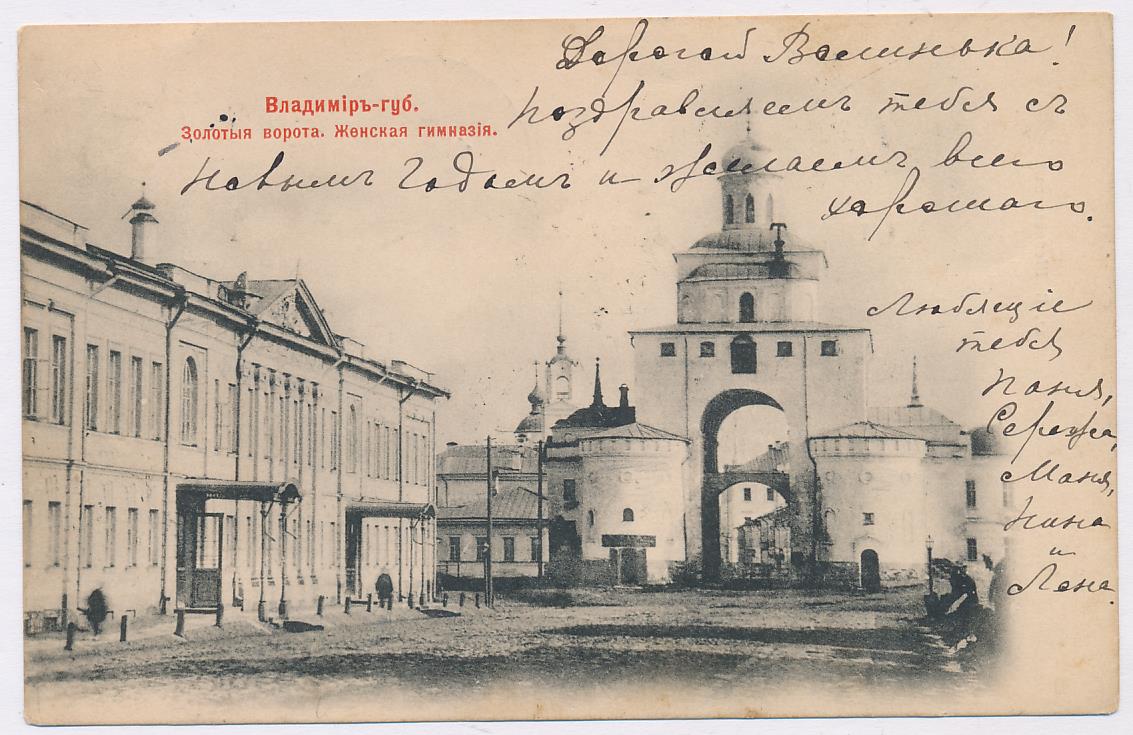 Владимiръ-губ.
Золотыя ворота. Женская гимназiя.
Дорогой Волинька!
поздравляемъ тебя съ
новымъ Годомъ и желаемъ всего
хорошаго.
Любящiе
тебя
Паня,
Сережа,
Маня,
Нина
и
Лена.